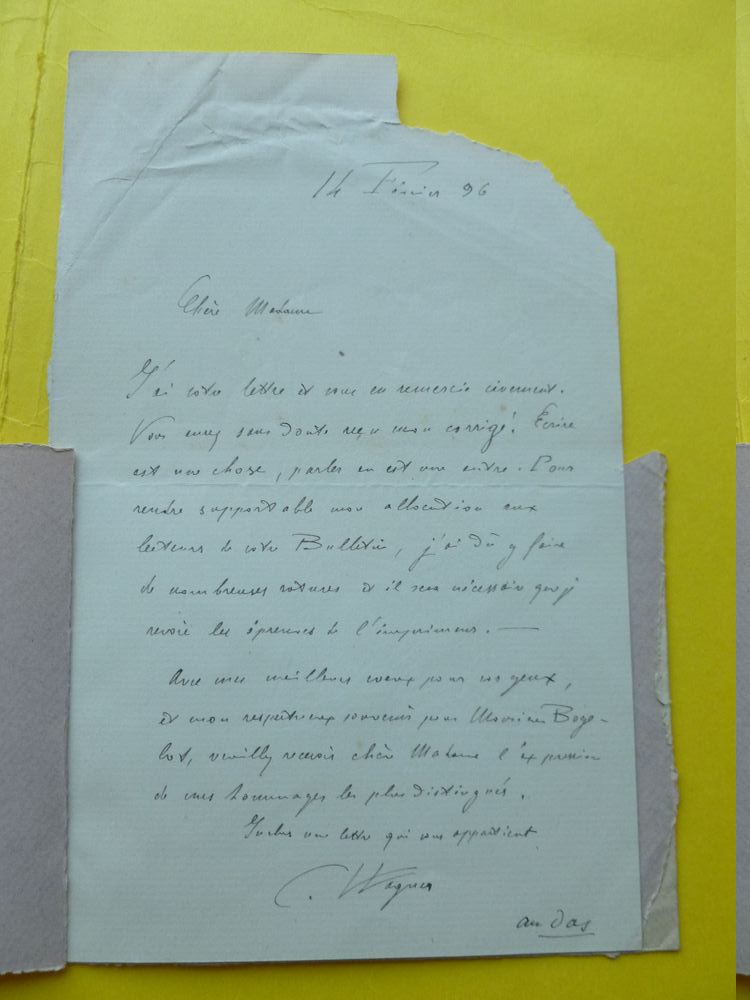 14 Février 96
Chère Madame
J'ai votre lettre et vous en remercie vivement.
Vous avez sans doute reçu mon corrigé. Écrire
est une chose, parler en est une autre. Pour
rendre supportable mon allocution aux
lecteurs de votre Bulletin, j'ai dû y faire
de nombreuses ratures et il sera nécessaire que j
revoie les épreuves de l'imprimeur. —
Avec mes meilleurs voeux pour vos yeux,
et mon respectueux souvenir pour Monsieur Boge-
lot, veuillez recevoir chère Madame l'expression
de mes hommages les plus distingués.
Inclus une lettre qui vous appartient
C. Wagner
au dos